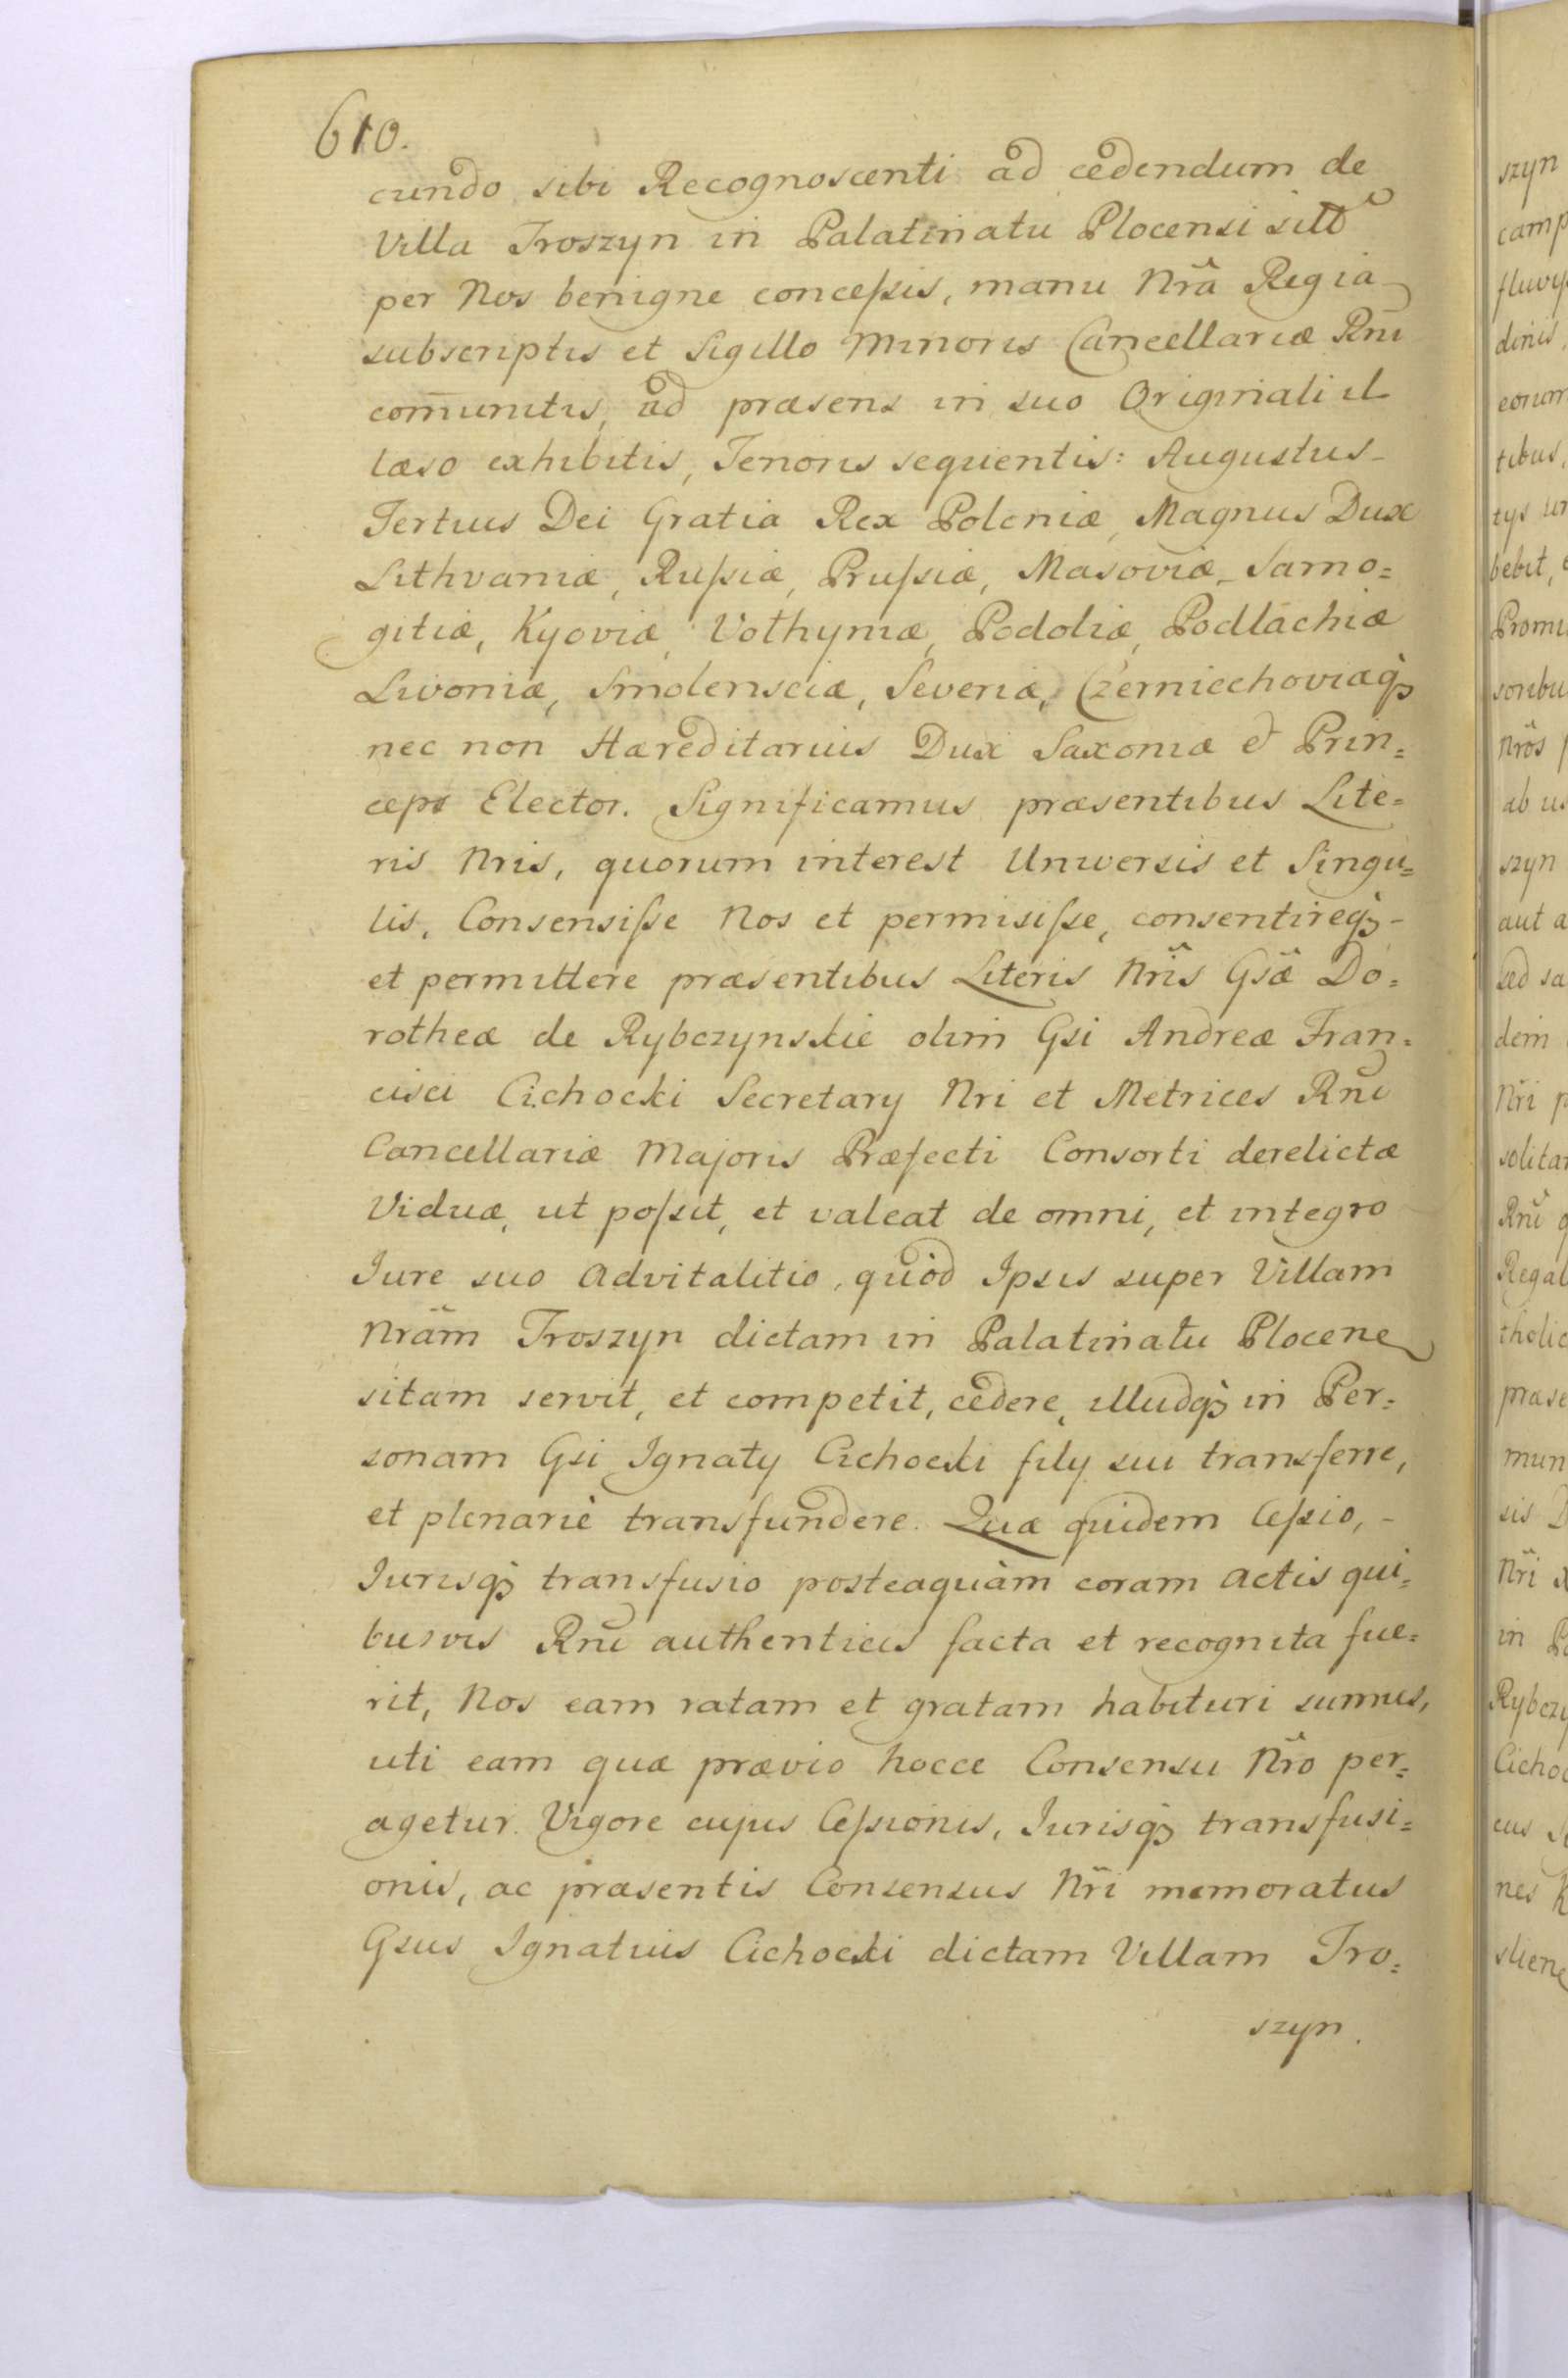 610.
cundo sibi Recognoscenti ad cedendum de
Villa Troszyn in Palatinatu Plocensi sitt
per Nos benigne conceſsis, manu Nrã Regia
subscriptis et Sigillo Minoris Cancellariæ Rnĩ
com̃unitis, ad præsens in suo Originali il
læso exhibitis, Tenoris sequentis: Augustus
Tertius Dei Gratia Rex Poloniæ, Magnus Dux
Lithvaniæ, Ruſsiæ, Pruſsiæ, Masoviæ, Samo=
gitiæ, Kyoviæ, Volhyniæ, Podoliæ, Podlachiæ
Livoniæ, Smolensciæ, Severiæ, Czerniechoviæq̃
nec non Hæreditarius Dux Saxoniæ & Prin=
ceps Elector. Significamus præsentibus Lite=
ris Nris, quorum interest Universis et Singu=
lis, Consensiſse Nos et permisiſse, consentireq̃ -
et permittere præsentibus Literis Nrĩs Gsæ̃ Do=
rotheæ de Rybczynskie olim Gsi Andreæ Fran=
cisci Cichocki Secretary Nri et Metrices Rnĩ
Cancellariæ Majoris Præfecti Consorti derelictæ
Viduæ, ut poſsit, et valeat de omni, et integro
Iure suo Advitalitio, quòd Ipsis super Villam
Nrãm Troszyn dictam in Palatinatu Plocene
sitam servit, et competit, cedere, illudq̃ in Per=
sonam Gsi Ignaty Cichocki fily sui transferre,
et plenariè transfundere. Quæ quidem Ceſsio, -
Iurisq̃ transfusio posteaquàm coram Actis qui=
busvis Rnĩ authenticis facta et recognita fue=
rit, Nos eam ratam et gratam habituri sumus,
uti eam quæ prævio hocce Consensu Nrõ per=
agetur. Vigore cujus Ceſsionis, Iurisq̃ transfusi=
onis, ac præsentis Consensus Nrĩ memoratus
Gsus Ignatius Cichocki dictam Villam Tro=
szyn.
szyn
camp
dinis,
eorum
tibus,
bebit,
Promi
sonbu
Nrõs
ab
szyn
aut a
sed sa
dem
Nrĩ
solitar
Rnĩ
Regal
tholic
præse
mun
sis
Nrĩ
in
Rybczy
Cichoc
nes